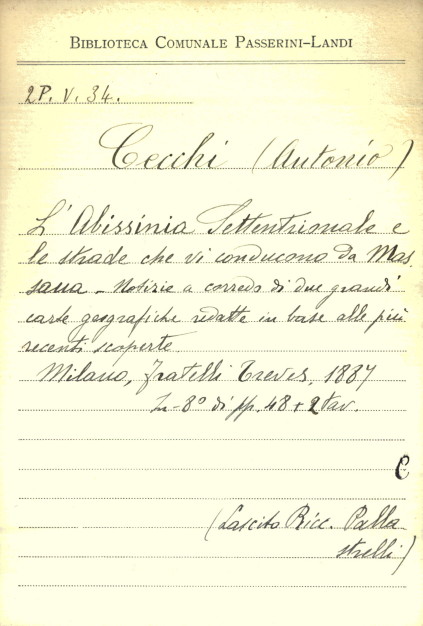 BIBLIOTECA COMUNALE PASSERINI-LANDI
2P. V. 34.
Cecchi (Antonio)
L'Abissinia Settentrionale e
le strade che vi conducono da Mas
saua - Notizie a corredo di due grandi
carte geografiche redatte in base alle più
recenti scoperte
Milano, Fratelli Treves, 1887
In-8º di pp. 48 + 2 tav.
C
(Lascito Ricc. Palla
strelli)